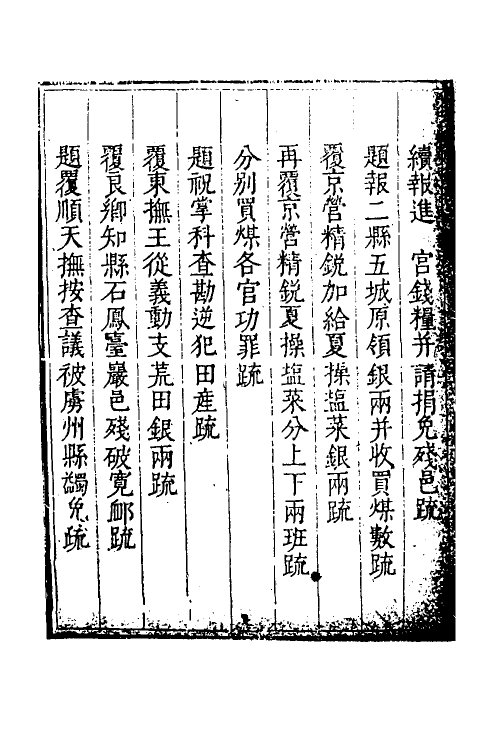 續報進　宮錢糧并請捐免殘邑疏
題報二縣五城原領銀兩并收買煤數疏
覆京營精銳加給夏操塩菜銀兩疏
再覆京營精銳夏操塩菜分上下兩班疏
分別買煤各官功罪疏
題祝掌科查勘逆犯田産疏
覆東撫王從義動支荒田銀兩疏
覆良鄉知縣石鳳臺嚴邑殘破寛邺疏
題覆順天撫按查議被虜州縣蠲免疏